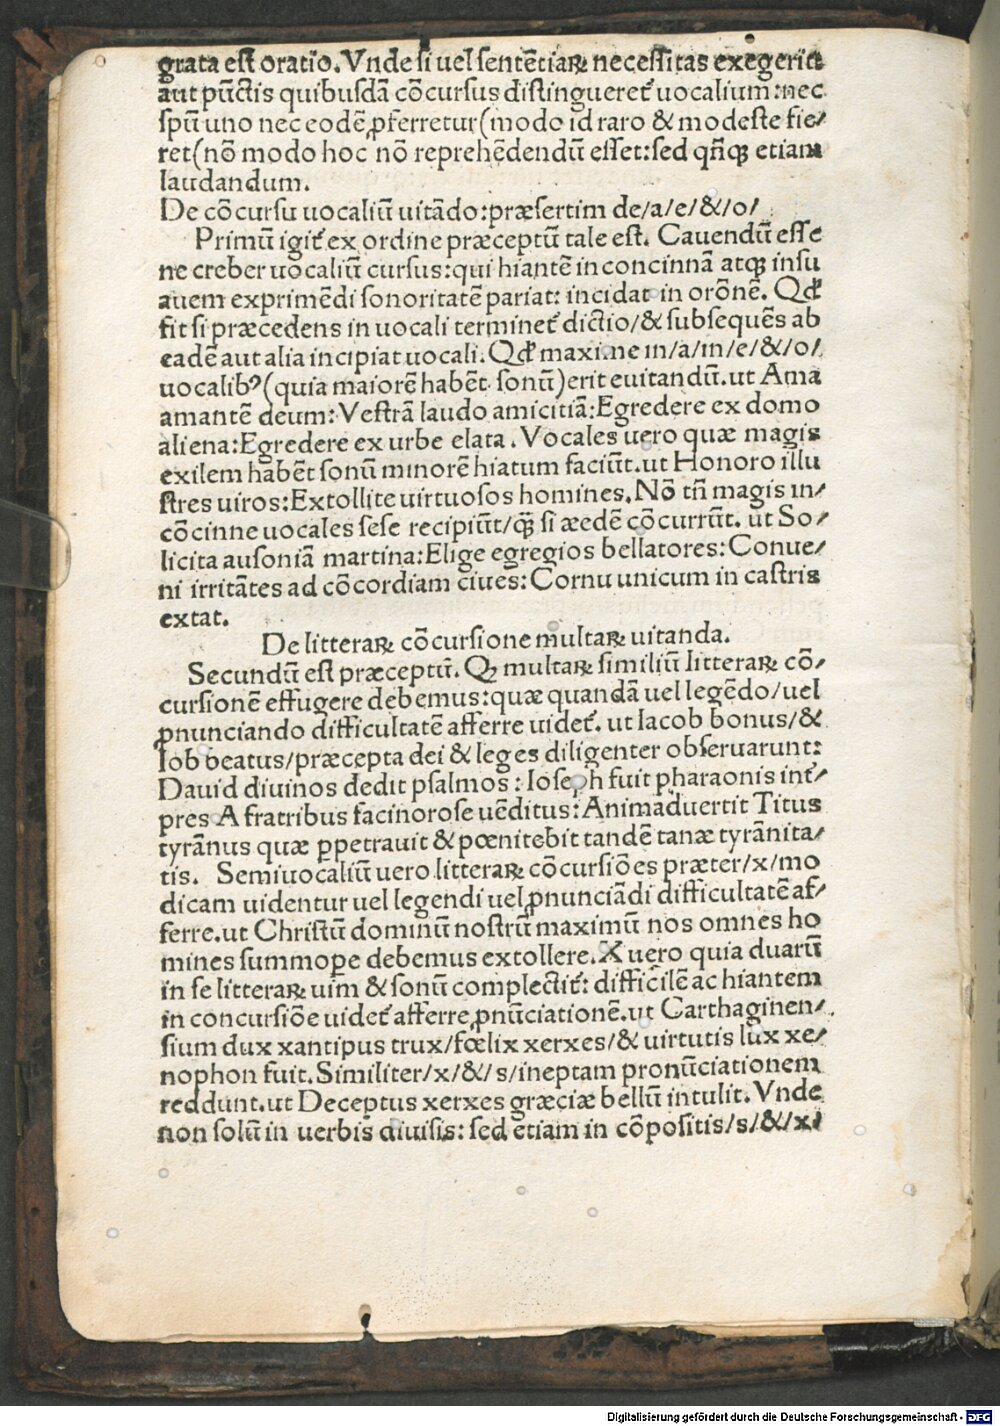 grata est oratio. Vnde si uel sentētiaꝝ necessitas exegerit
aut pūctis quibusdā cōcursus distingueret᷑ uocalium: nec
spū uno nec eodē ꝓferretur (modo id raro & modeste fie/
ret (nō modo hoc nō reprehēdendū esset: sed qn̄qꝫ etiam
laudandum.
De cōcursu uocaliū uitādo: præsertim de/a/e/&/o/
Primū igit᷑ ex ordine præceptū tale est. Cauendū esse
ne creber uocaliū cursus: qui hiantē inconcinnā atqꝫ insu
auem exprimēdi sonoritatē pariat: incidat in orōnē. Qđ
fit si præcedens in uocali terminet᷑ dictio/& subsequēs ab
eadē aut alia incipiat uocali. Qđ maxime in/a/in/e/&/o/
uocalibꝰ (quia maiorē habēt sonū) erit euitandū. ut Ama
amantē deum: Vestrā laudo amicitiā: Egredere ex domo
aliena: Egredere ex urbe elata. Vocales uero quæ magis
exilem habēt sonū minorē hiatum faciūt. ut Honoro illu
stres uiros: Extollite uirtuosos homines. Nō tn̄ magis in/
cōcinne uocales sese recipiūt/qꝫ̄ si æedē cōcurrūt. ut So/
licita ausoniā martina: Elige egregios bellatores: Conue/
ni irritātes ad cōcordiam ciues: Cornu unicum in castris
extat.
De litteraꝝ cōcursione multaꝝ uitanda.
Secundū est præceptū. Qꝫ multaꝝ similiū litteraꝝ cō/
cursionē effugere debemus: quæ quandā uel legēdo/uel
ꝓnunciando difficultatē afferre uidet᷑. ut Iacob bonus/&
Iob beatus/præcepta dei & leges diligenter obseruarunt:
Dauid diuinos dedit psalmos: Ioseph fuit pharaonis int᷑/
pres A fratribus facinorose uēditus: Animaduertit Titus
tyrānus quæ ꝑpetrauit & pœnitebit tandē tanæ tyrānita/
tis. Semiuocaliū uero litteraꝝ cōcursiōes præter/x/mo
dicam uidentur uel legendi uel ꝓnunciādi difficultatē af/
ferre. ut Christū dominū nostrū maximū nos omnes ho
mines summoꝑe debemus extollere. X uero quia duarū
in se litteraꝝ uim & sonū complectit᷑: difficilē ac hiantem
in concursiōe uidet᷑ afferre ꝓnūciationē. ut Carthaginen/
sium dux xantipus trux/fœlix xerxes/& uirtutis lux xe/
nophon fuit. Similiter/x/&/s/ineptam pronūciationem
reddunt. ut Deceptus xerxes græciæ bellū intulit. Vnde
non solū in uerbis diuisis: sed etiam in cōpositis/s/&/x/
Digitalisierung gefördert durch die Deutsche Forschungsgemeinschaft - DFG